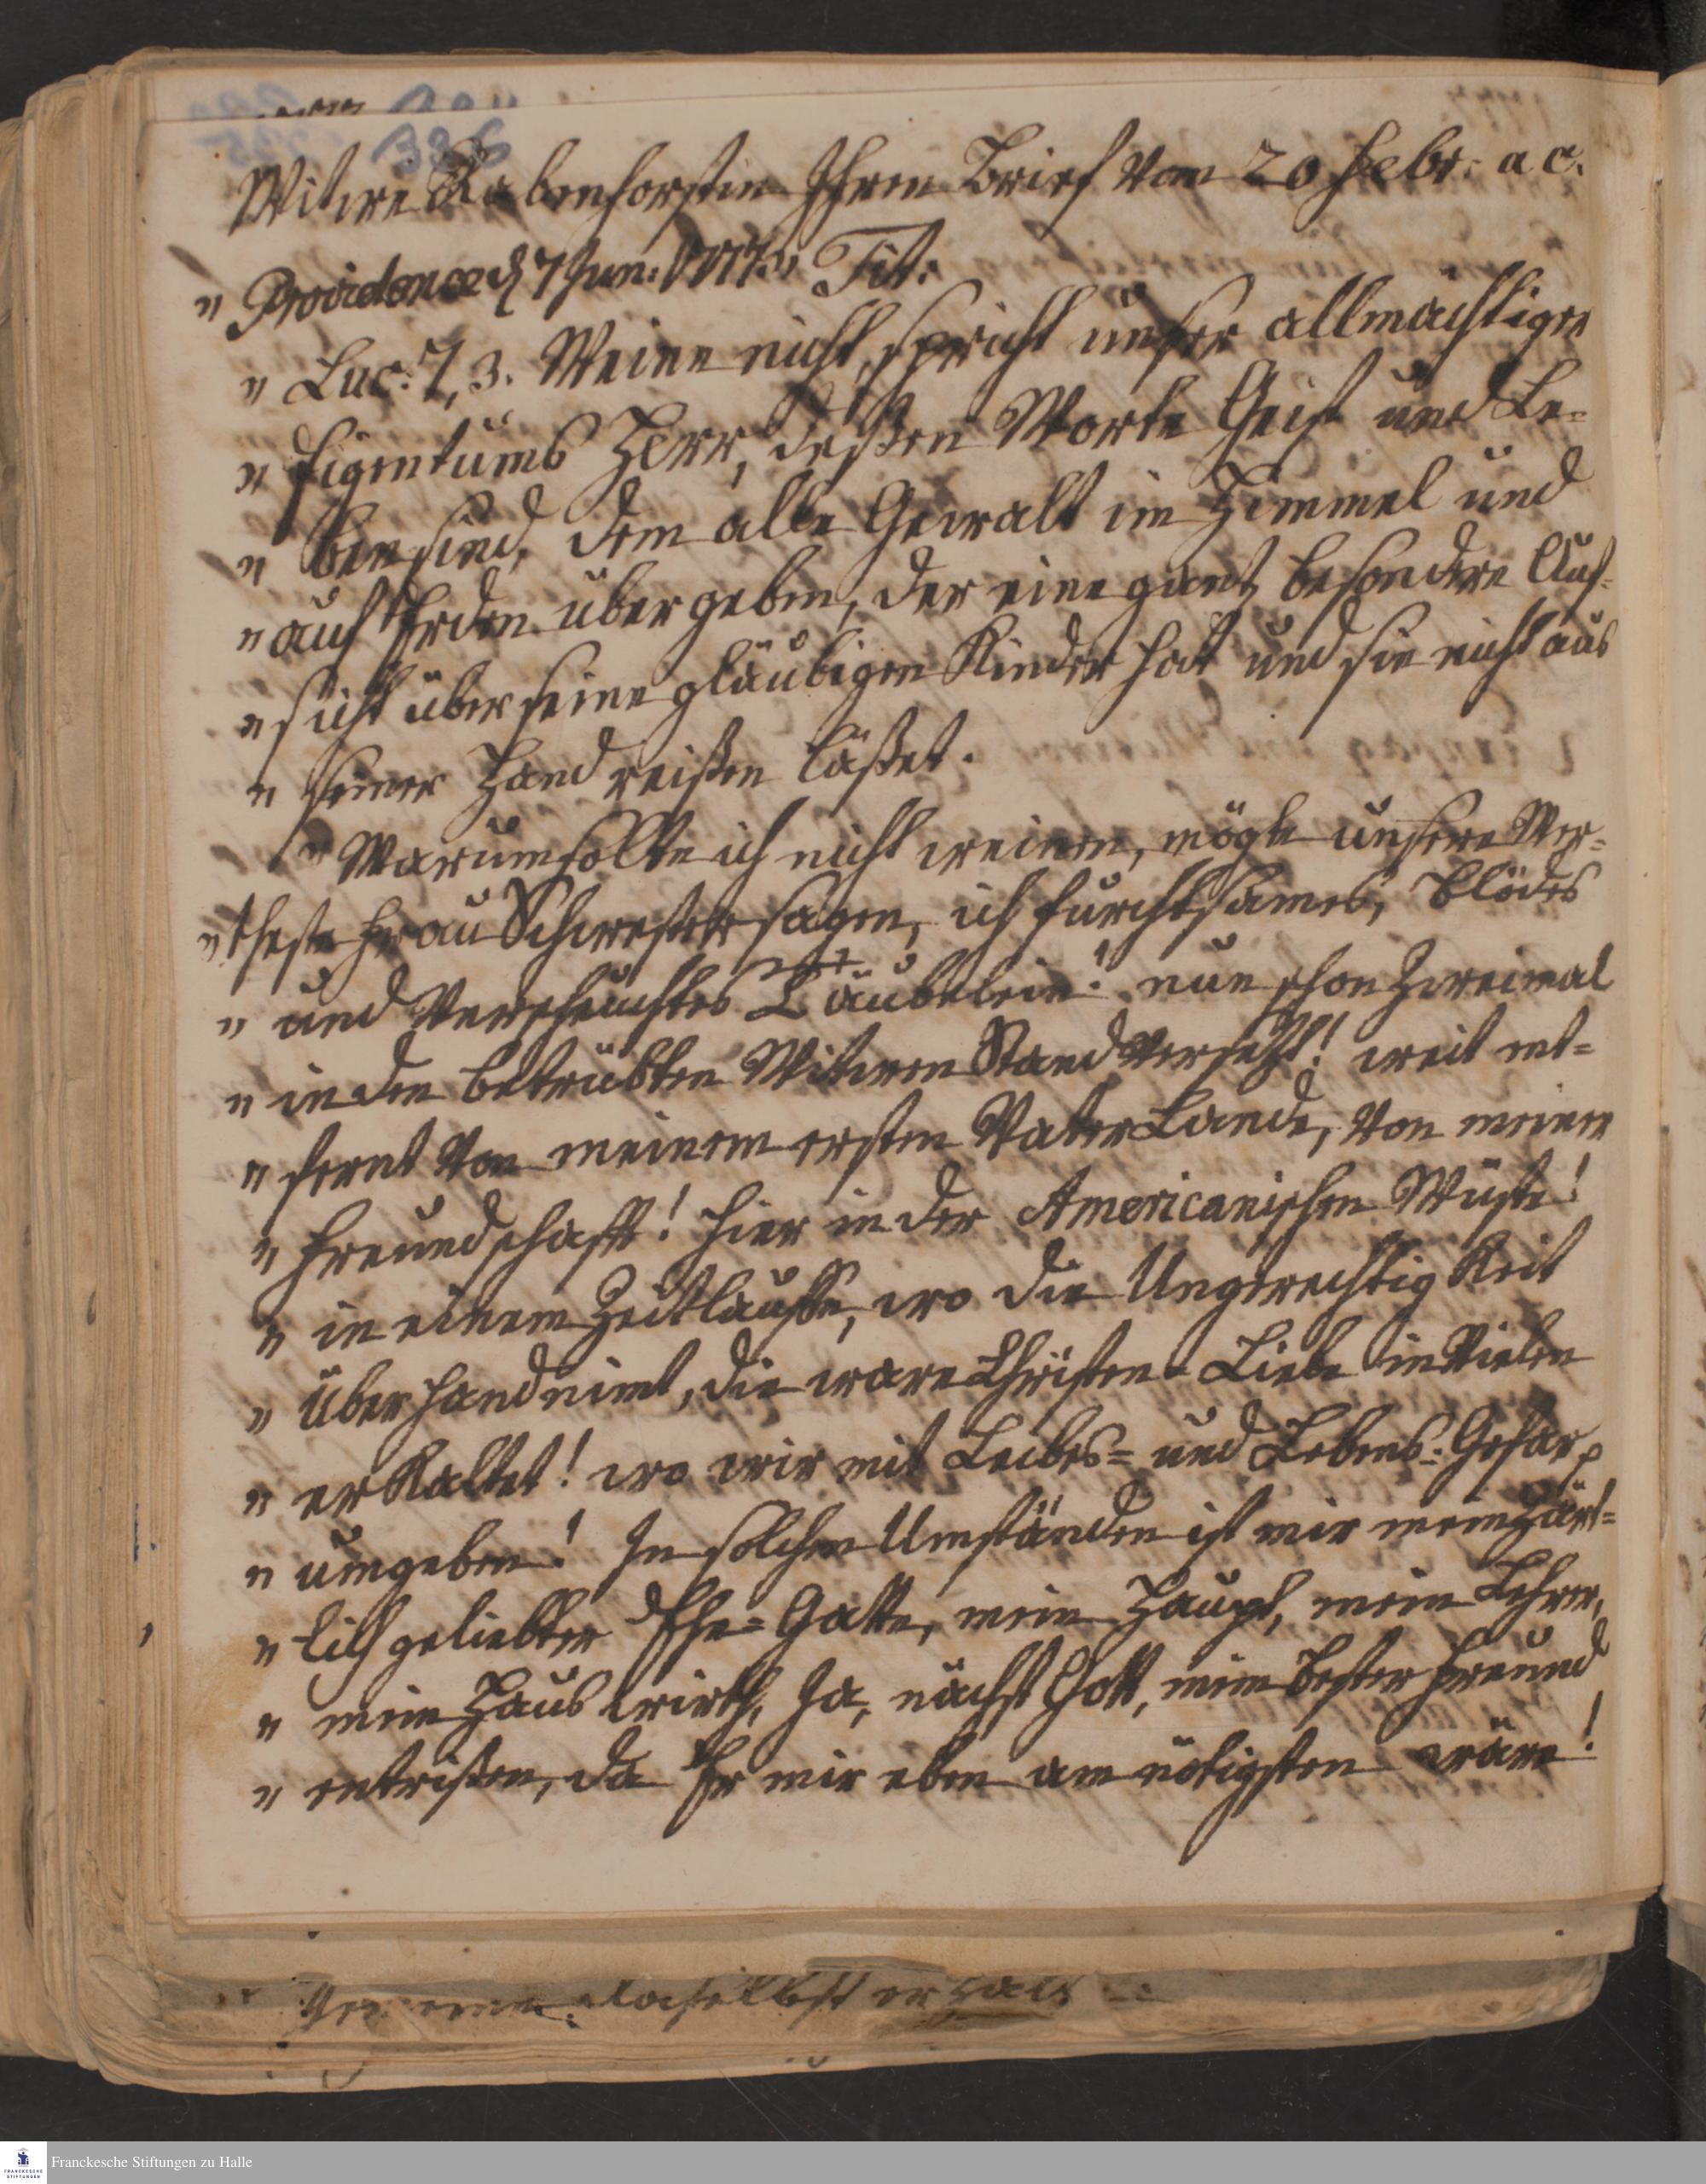 Witwe Rabenhorstin Ihren Brief vom 20 Febr: a c.
„ Providence d 7 Jun: 1777. Tit:
„ Luc: 7, 3. Weine nicht, spricht unser allmächtiger
„ Eigentums Herr, deßen Worte Geist und Le=
„ ben sind, dem alle Gewalt im Himmel und
„ auf Erden übergeben, der eine gantz besondere Auf-
„ sicht über seine gläubigen Kinder hat und sie nicht aus
„ seiner Hand reißen läßet.
„ Warum sollte ich nicht weinen, mögte unsere Wer=
„ theste Frau Schwester sagen, ich furchtsames, blödes
„ und verscheuchtes Täubelein! nun schon zweimal
„ in den betrübten Witwen Stand versetzt! weit ent=
„ fernt von meinem ersten Vater Lande, von meiner
„ Freundschafft! hier in der Americanischen Wüste!
„ in einem Zeitlauffe, wo die Ungerechtigkeit
„ Überhand nimt, die ware Christen=Liebe in Vielen
„ erkaltet! wo wir mit Leibes= und Lebens=Gefar
„ umgeben! In solchen Umständen ist mir mein Zärt=
„ lich geliebter Ehe=Gatte, mein Haupt, mein Lehrer,
„ mein Haus wirth, Ja, nächst Gott, mein bester Freund
„ entrißen, da Er mir eben am nötigsten wäre!
daselbst erhalt
Franckesche Stiftungen zu Halle
FRANCKESCHE
STIFTUNGEN